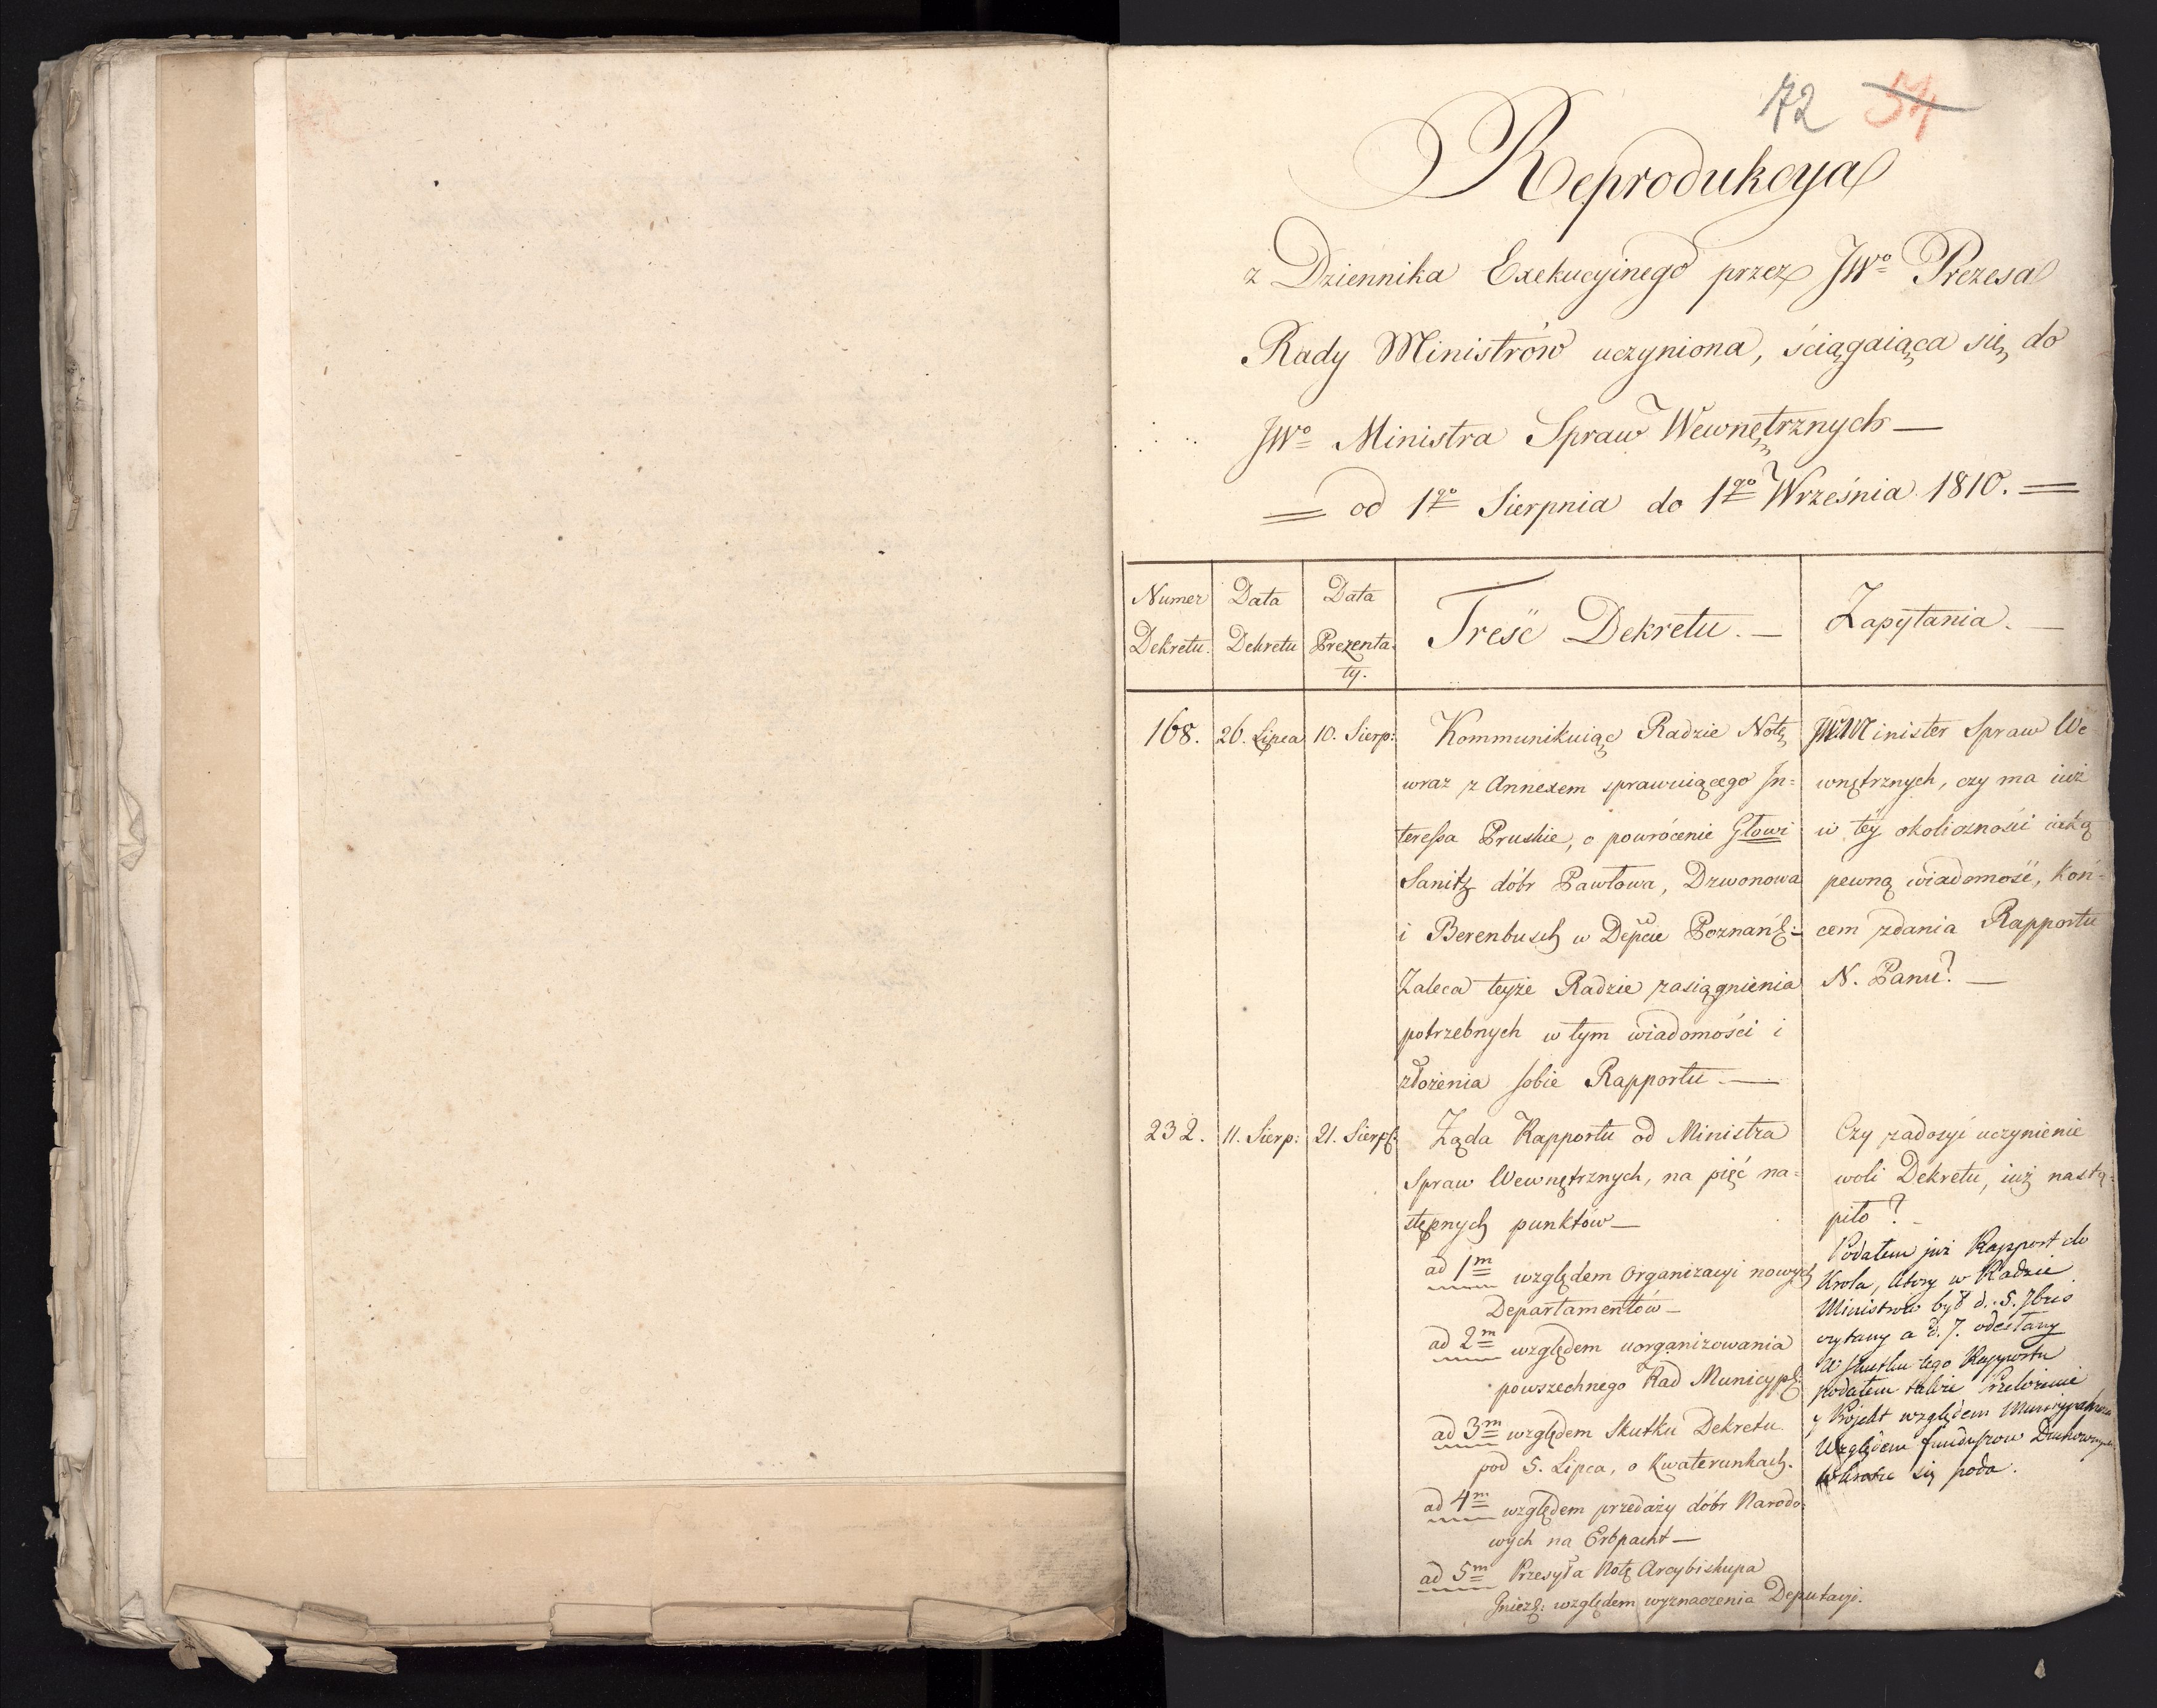 72 54
Reprodukcya
z Dziennika Exekucyinego przez JWo Prezesa
Rady Ministrów uczyniona, ściągaiąca się do
JWo Ministra Spraw Wewnętrznych —
= od 1go Sierpnia do 1go Września 1810. =
Numer
Dekretu.
Data
Dekretu
Data
Prezenta-
ty.
Treść Dekretu. —
Zapytania. —
168. 26. Lipca 10. Sierp:
Kommunikuiąc Radzie Notę
wraz z Annexem sprawuiącego In-
teressa Pruskie, o powrócenie Głowi
Sanitz dóbr Pawłowa, Dzwonowa
i Berenbusch w Depcie Poznańs: —
Zaleca teyże Radzie zasiągnienia
potrzebnych w tym wiadomości i
złożenia sobie Rapportu. —
JW. Minister Spraw We
wnętrznych, czy ma iuż
w tey okoliczności iaką
pewną wiadomość, koń-
cem zdania Rapportu
N. Panu? —
232. 11. Sierp: 21. Sierp:
Żąda Rapportu od Ministra
Spraw Wewnętrznych, na pięć na-
stępnych punktów —
ad 1m względem Organizacyi nowych
Departamentów —
ad 2m względem uorganizowania
powszechnego Rad Municyp:
ad 3m względem Skutku Dekretu
pod 5. Lipca, o Kwaterunkach.
ad 4m względem przedaży dóbr Narodo-
wych na Erbpacht —
ad 5m Przesyła Notę Arcybiskupa
Gniez: względem wyznaczenia Deputacyi.
Czy zadosyć uczynienie
woli Dekretu, iuż nastą-
piło? —
Podałem już Rapport do
Krola, ktory w Radzie
Ministrow był d. 5. 7bris
czytany a d. 7. odesłany
W skutku tego Rapportu
podałem także Przełożenie
y Projekt względem
Względem funduszow
wkrotce się poda.